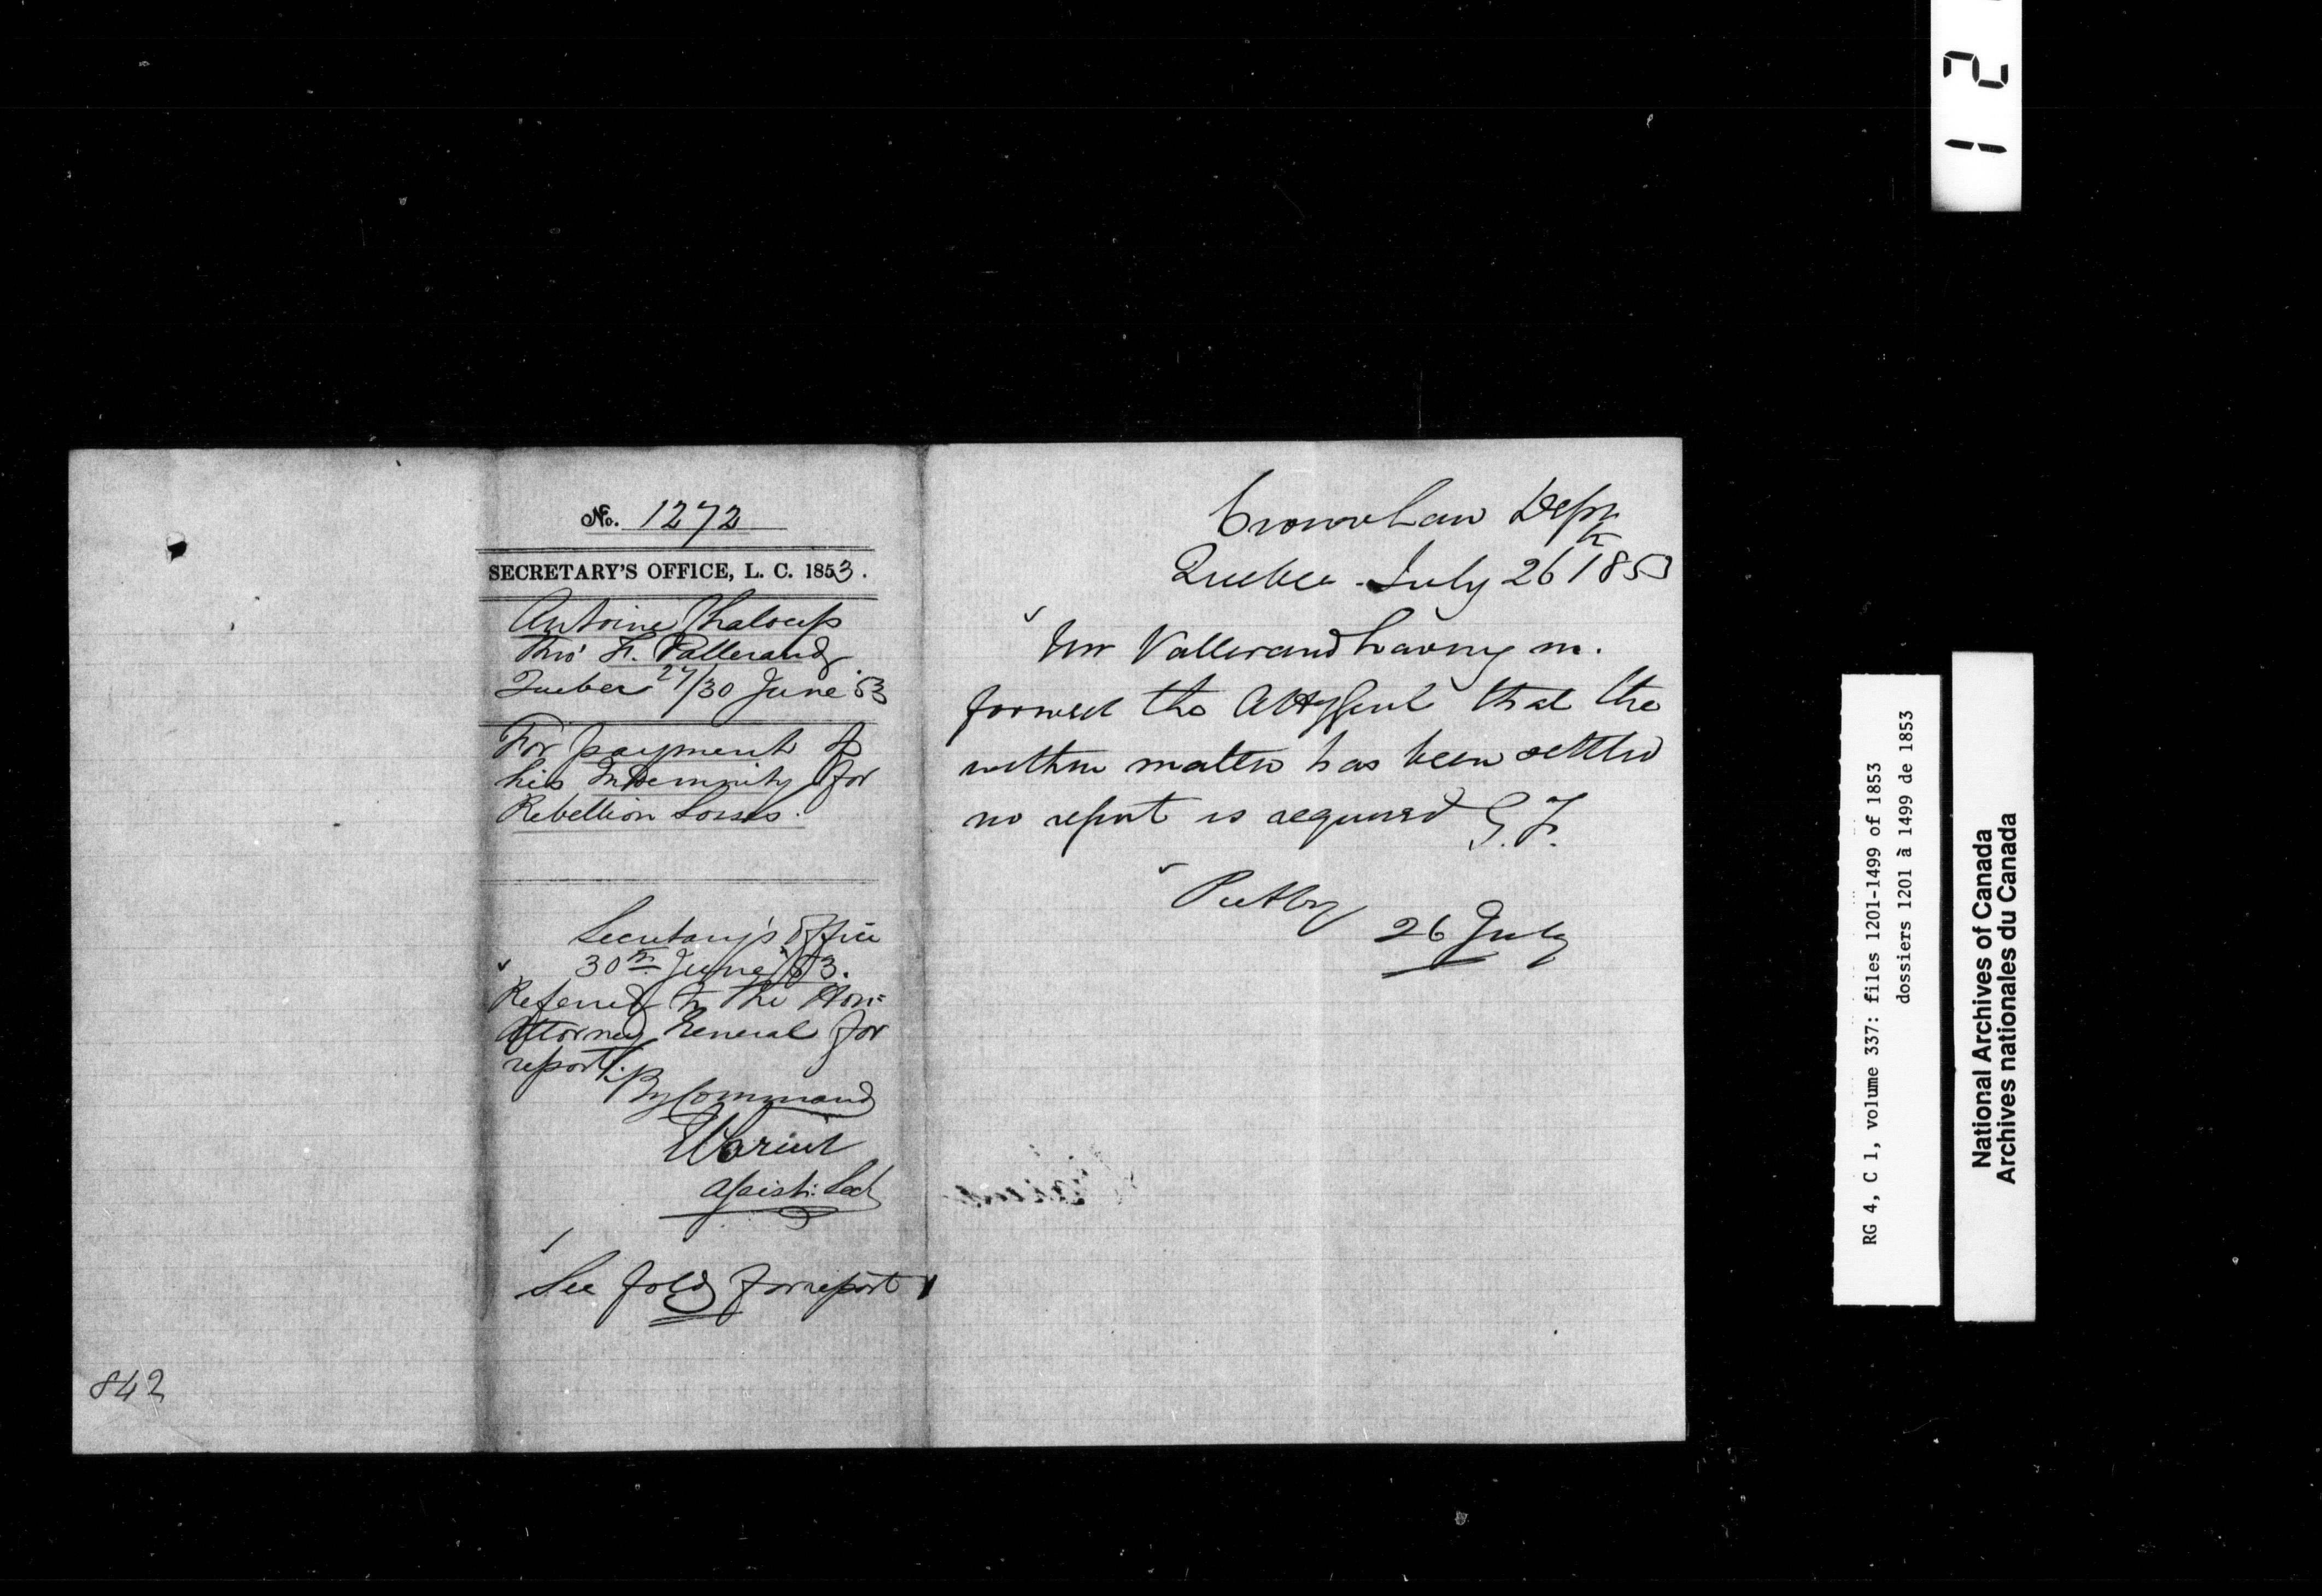 No. 1272
SECRETARY'S OFFICE, L. C. 1853.
Antoine Chaloup
Thro' F. Vallerand
Quebec 27/30 June '53
For payment of
his Indemnity for
Rebellion Losses.
Secretary's Office
30th June /53.
Referred to the Hon:
Attorney General for
report.
By Command
E Parent
Assist: Sec
See fold for report
842
Crown Law Dept
Quebec July 26 1853
Mr Vallerand having in-
formed the Atty Genl that the
within matter has been settled
no report is required G. F.
Put by
26 July
1 2
RG 4, C 1, volume 337: files 1201-1499 of 1853
dossiers 1201 à 1499 de 1853
National Archives of Canada
Archives nationales du Canada